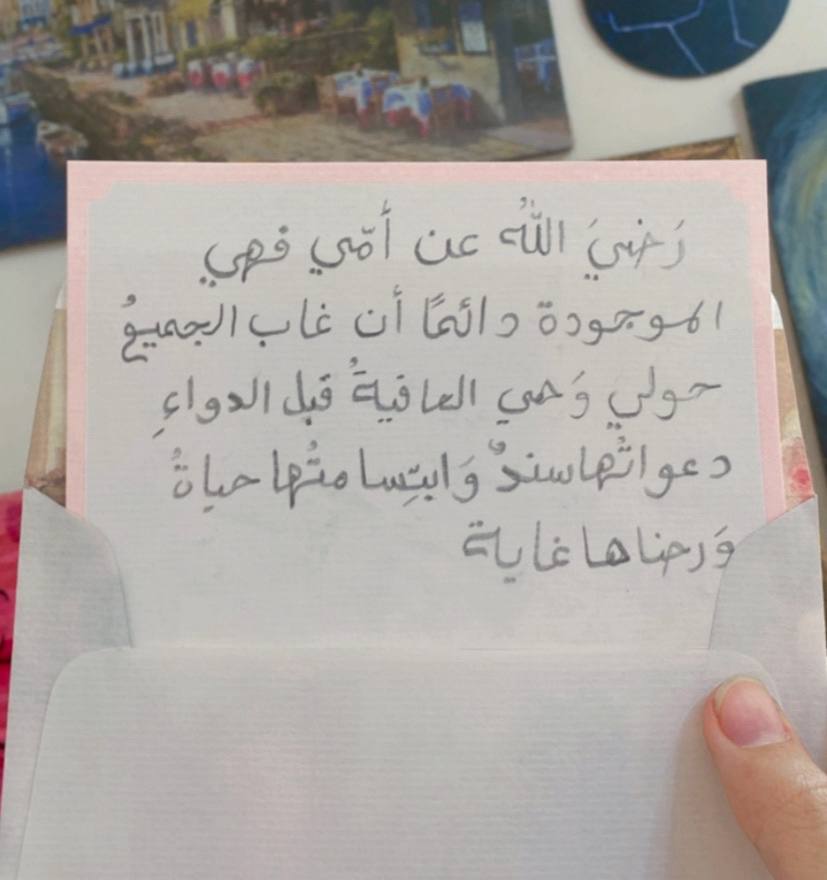 رَضيَ اللّٰهُ عن أمّي فهي
الموجودة دائمًا أن غاب الجميعُ
حولي وَهي العافيةُ قبل الدواءِ
دعواتُها سندٌ وَابتِسامتُها حياةُ
وَرضاها غاية